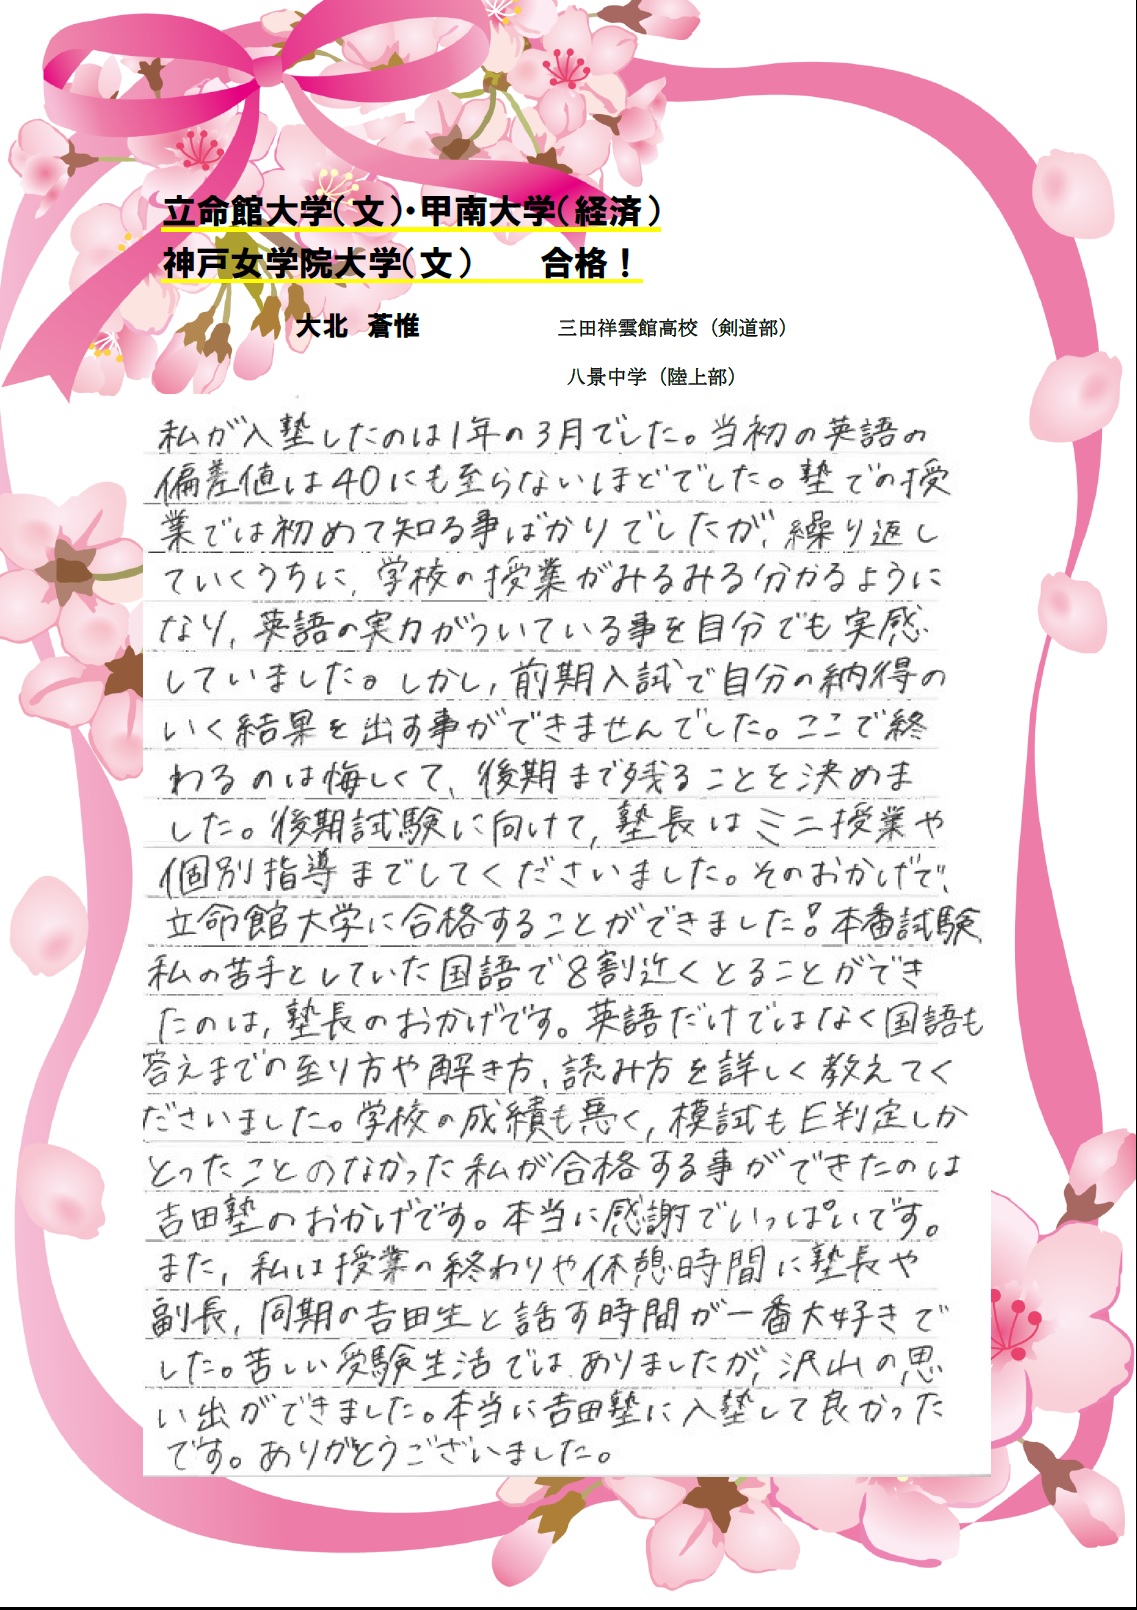 立命館大学(文)・甲南大学(経済)
神戸女学院大学(文)　　合格！
大北　蒼惟　　三田祥雲館高校（剣道部）
八景中学（陸上部）
私が入塾したのは1年の3月でした。当初の英語の
偏差値は40にも至らないほどでした。塾での授
業では初めて知る事ばかりでしたが、繰り返し
ていくうちに、学校の授業がみるみる分かるように
なり、英語の実力がついている事を自分でも実感
していました。しかし、前期入試で自分の納得の
いく結果を出す事ができませんでした。ここで終
わるのは悔しくて、後期まで残ることを決めま
した。後期試験に向けて、塾長はミニ授業や
個別指導までしてくださいました。そのおかげで、
立命館大学に合格することができました。本番試験、
私の苦手としていた国語で8割近くとることができ
たのは、塾長のおかげです。英語だけではなく国語も
答えまでの至り方や解き方、読み方を詳しく教えてく
ださいました。学校の成績も悪く、模試もE判定しか
とったことのなかった私が合格する事ができたのは
吉田塾のおかげです。本当に感謝でいっぱいです。
また、私は授業の終わりや休憩時間に塾長や
副長、同期の吉田生と話す時間が一番大好きで
した。苦しい受験生活ではありましたが、沢山の思
い出ができました。本当に吉田塾に入塾して良かった
です。ありがとうございました。